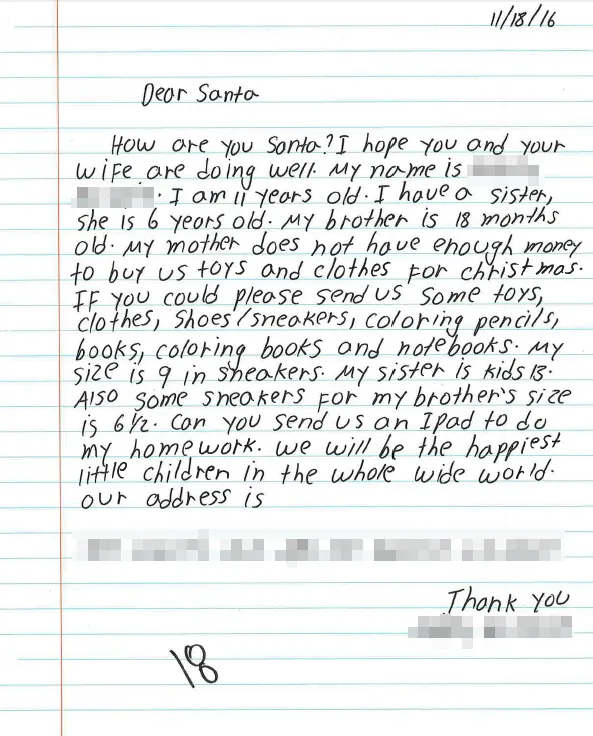 11/18/16
Dear Santa
How are you Santa? I hope you and your
wife are doing well. My name is
. I am 11 years old. I have a sister,
she is 6 years old. My brother is 18 months
old. My mother does not have enough money
to buy us toys and clothes for christmas.
If you could please send us some toys,
clothes, shoes/sneakers, coloring pencils,
books, coloring books and notebooks. My
size is 9 in sneakers. My sister is kids 13.
Also some sneakers for my brother's size
is 6 1/2. Can you send us an Ipad to do
my homework. We will be the happiest
little children in the whole wide world.
our address is
Thank you
18